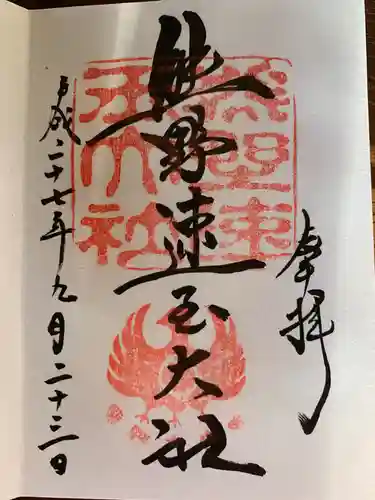 奉拝
熊野速玉大社
平成二十七年九月二十三日
熊野速玉大社